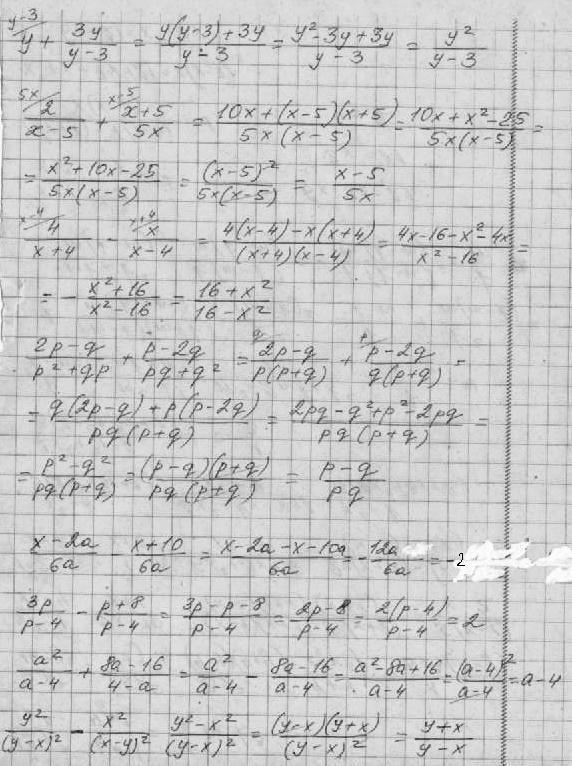 y-3/ y + 3y/(y-3) = (y(y-3)+3y)/(y-3) = (y²-3y+3y)/(y-3) = y²/(y-3)
5x/ 2/(x-5) + x-5/ (x+5)/5x = (10x+(x-5)(x+5))/(5x(x-5)) = (10x+x²-25)/(5x(x-5)) =
= (x²+10x-25)/(5x(x-5)) = (x-5)²/(5x(x-5)) = (x-5)/5x
x-4/ 4/(x+4) - x+4/ x/(x-4) = (4(x-4)-x(x+4))/((x+4)(x-4)) = (4x-16-x²-4x)/(x²-16) =
= - (x²+16)/(x²-16) = (16+x²)/(16-x²)
(2p-q)/(p²+qp) + (p-2q)/(pq+q²) = q/ (2p-q)/(p(p+q)) + p/ (p-2q)/(q(p+q)) =
= (q(2p-q)+p(p-2q))/(pq(p+q)) = (2pq-q²+p²-2pq)/(pq(p+q)) =
= (p²-q²)/(pq(p+q)) = ((p-q)(p+q))/(pq(p+q)) = (p-q)/pq
(x-2a)/6a - (x+10)/6a = (x-2a-x-10a)/6a = -12a/6a = -2
3p/(p-4) - (p+8)/(p-4) = (3p-p-8)/(p-4) = (2p-8)/(p-4) = 2(p-4)/(p-4) = 2
a²/(a-4) + (8a-16)/(4-a) = a²/(a-4) - (8a-16)/(a-4) = (a²-8a+16)/(a-4) = (a-4)²/(a-4) = a-4
y²/(y-x)² - x²/(x-y)² (y²-x²)/(y-x)² = ((y-x)(y+x))/(y-x)² = (y+x)/(y-x)